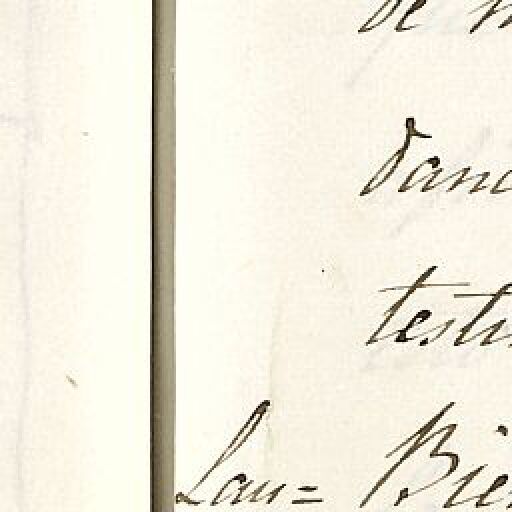 de
danc
testi
Lau= Bie